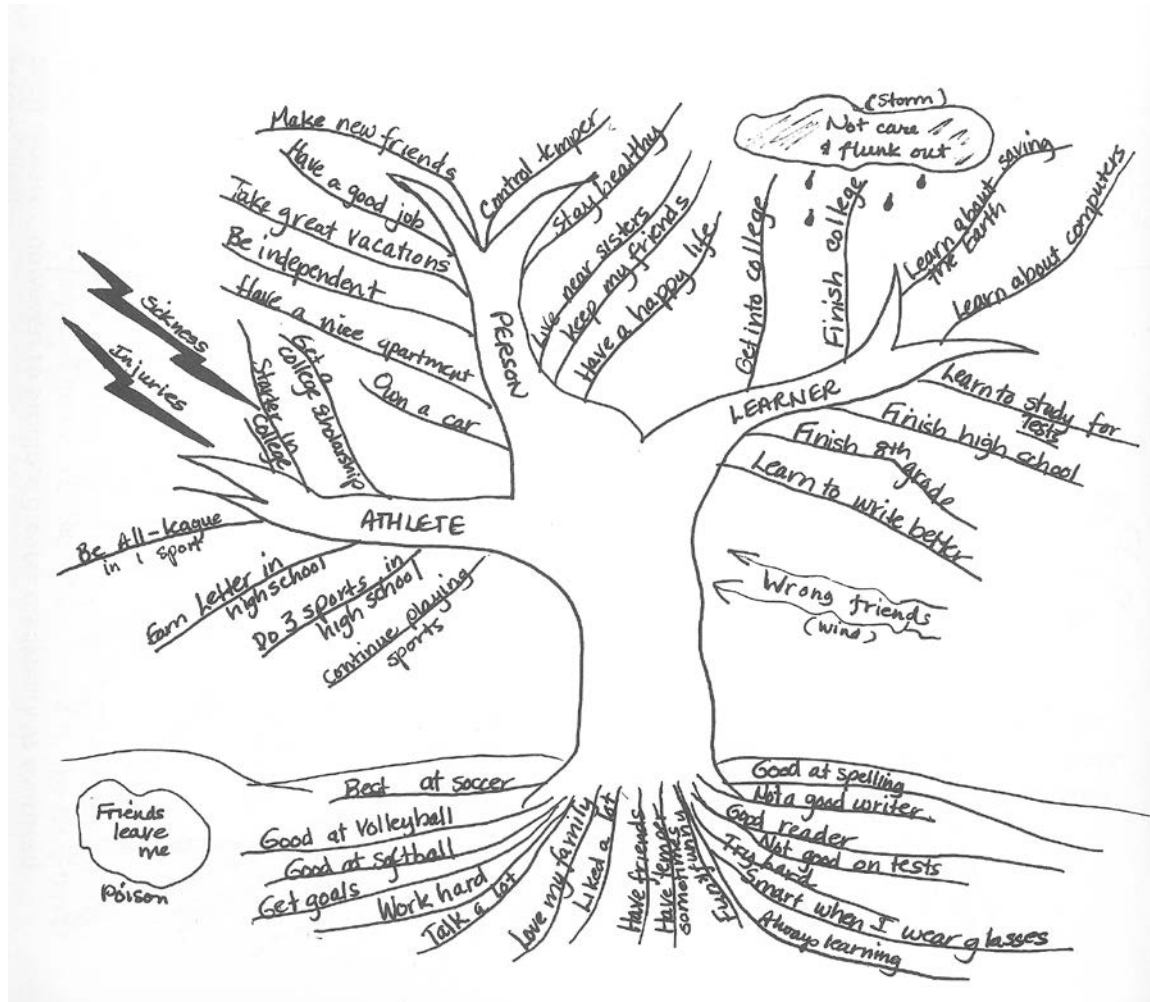 Make new friends
Have a good job
Take great vacations
Be independent
Have a nice apartment
Own a car
PERSON
Control temper
Stay healthy
Live near sisters
Keep my friends
Have a happy life
(Storm)
Not care
& flunk out
Get into college
Finish college
Learn about saving
the Earth
Learn about computers
LEARNER
Learn to study for
Tests
Finish high school
Finish 8th
grade
Learn to write better
Sickness
Injuries
Starter in
College
Get a
college scholarship
ATHLETE
Be All-league
in 1 sport
Earn Letter in
high school
Do 3 sports in
high school
Continue playing
sports
Wrong friends
(wind)
Friends
leave
me
Poison
Best at soccer
Good at volleyball
Good at softball
Get goals
Work hard
Talk a lot
Love my family
Liked a lot
Have friends
Have temper
sometimes
Funny
Good at spelling
Not a good writer
Good reader
Not good on tests
Try hard
Smart when I wear glasses
Always learning